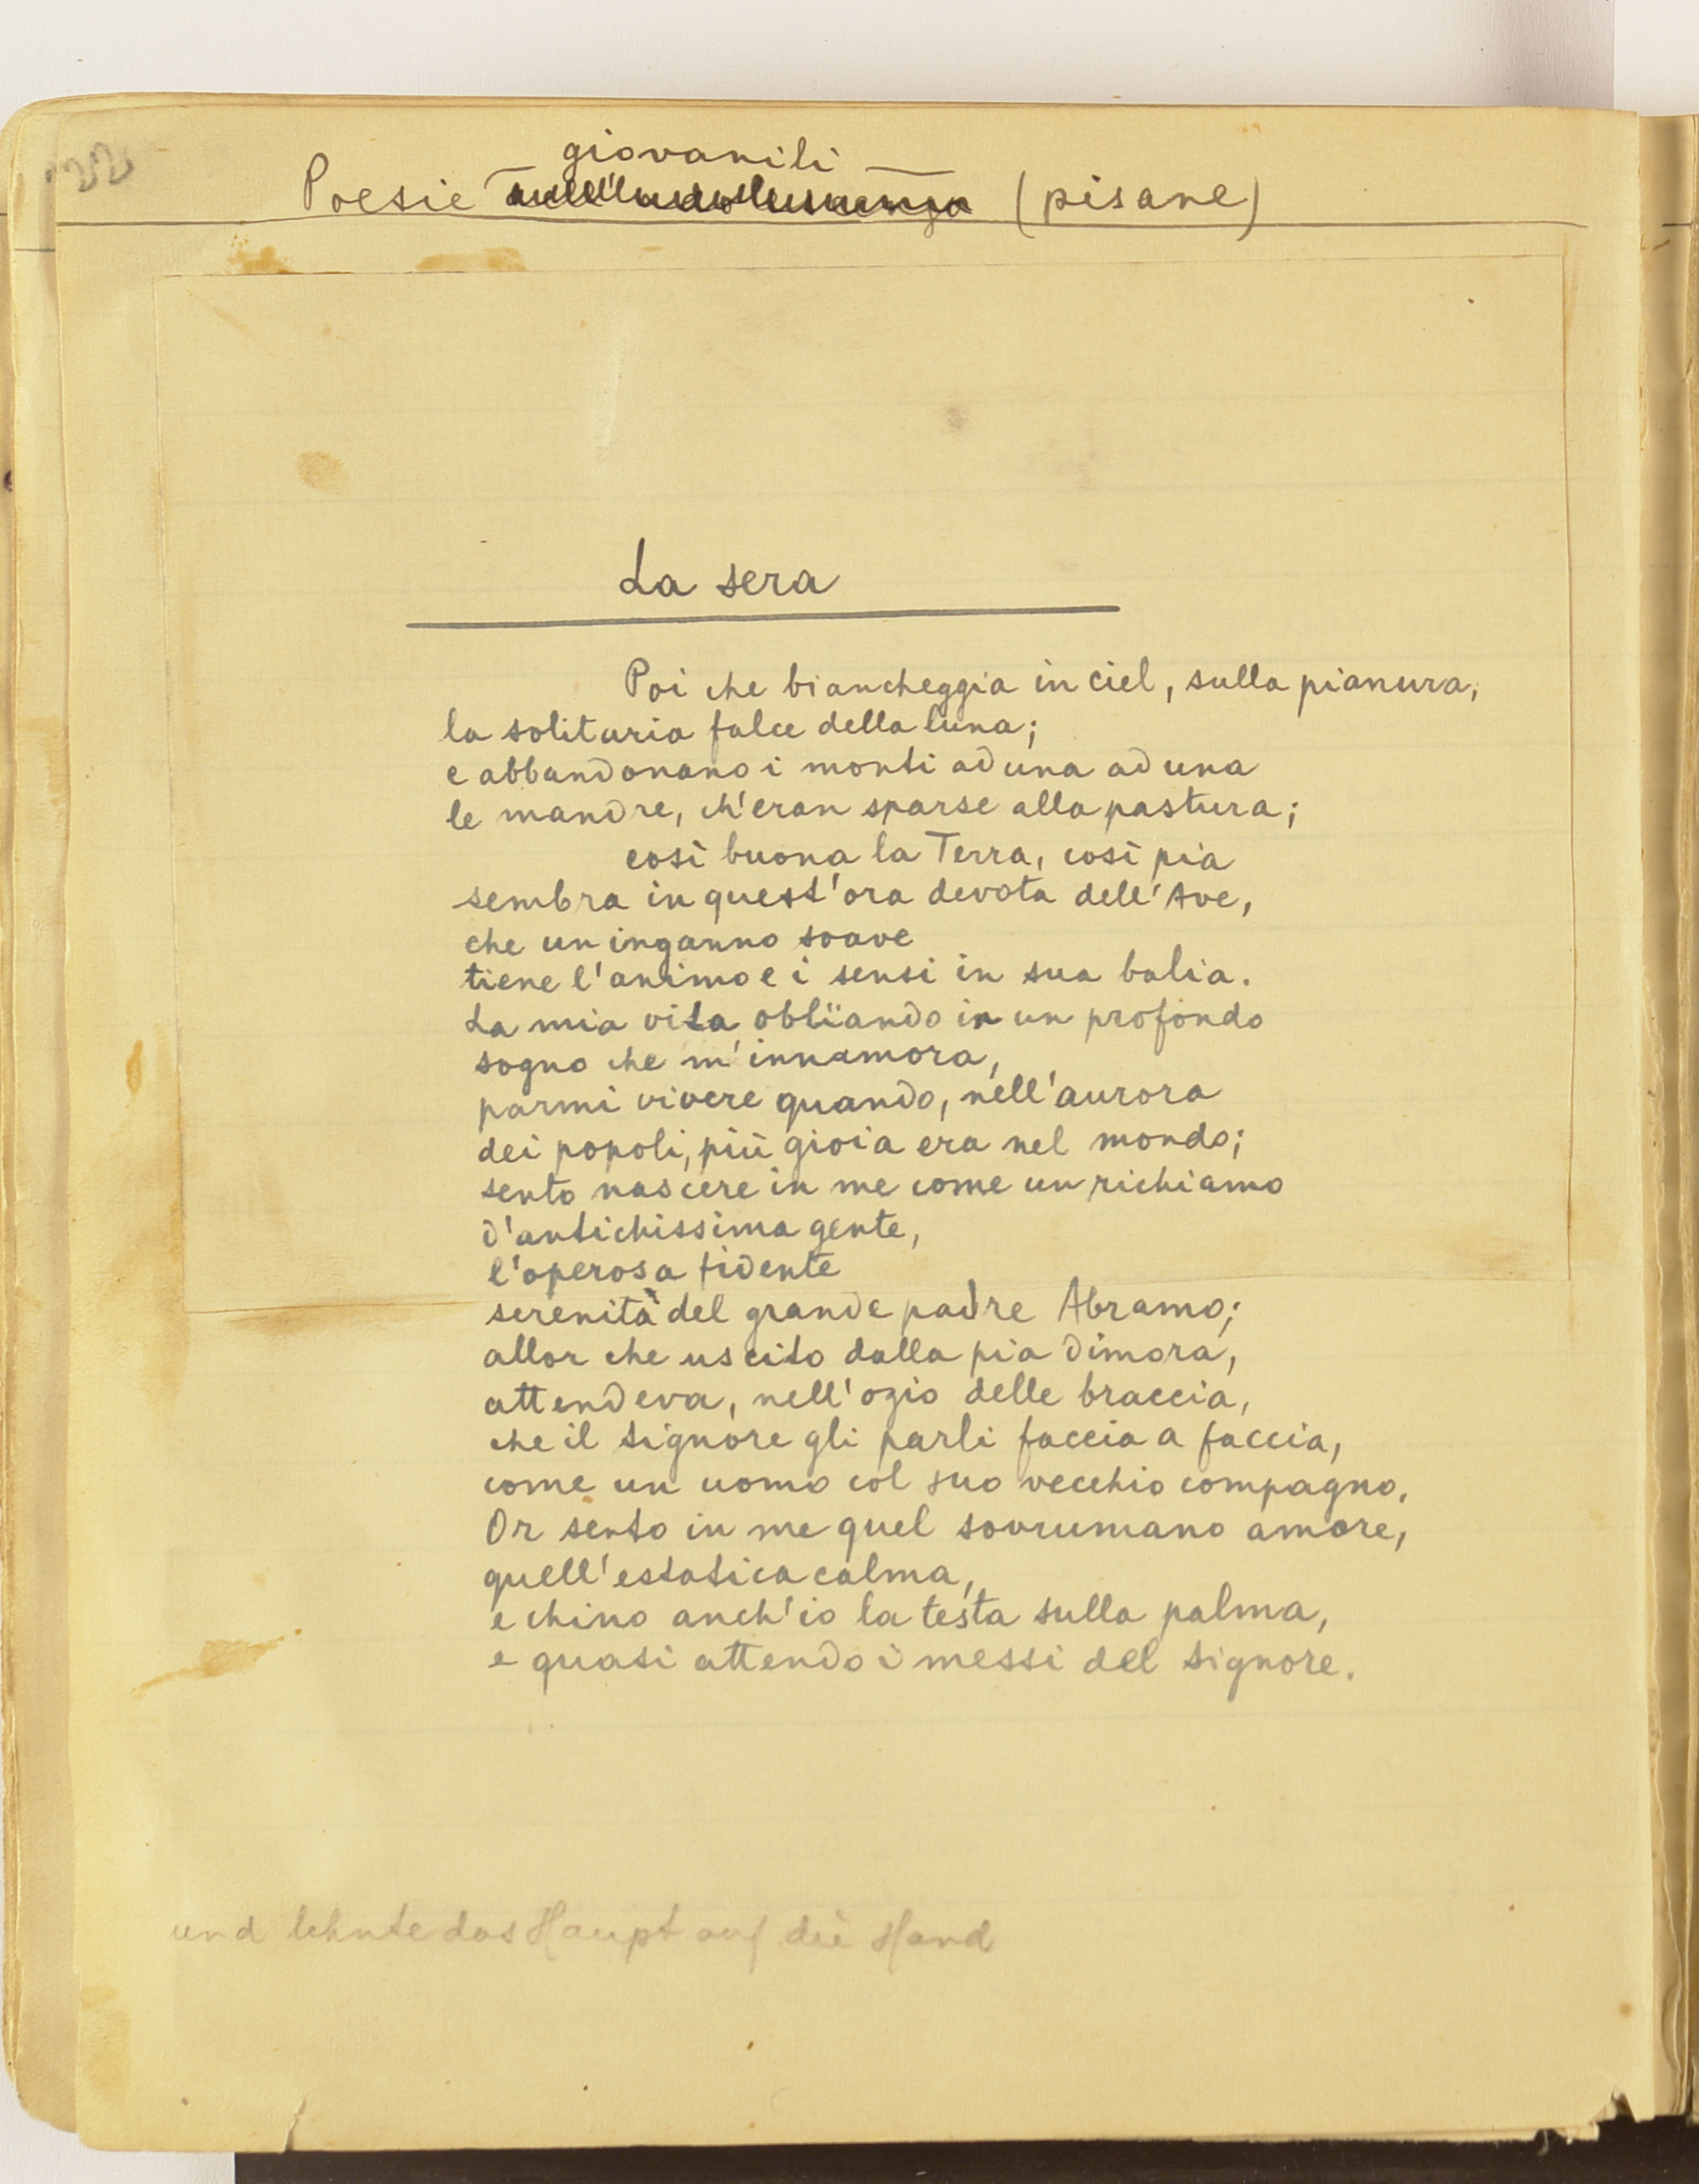 22
giovanili
Poesie dell'adolescenza (pisane)
La sera
Poi che biancheggia in ciel, sulla pianura,
la solitaria falce della luna;
e abbandonano i monti ad una ad una
le mandre, ch'eran sparse alla pastura;
così buona la Terra, così pia
sembra in quest'ora devota dell'Ave,
che un inganno soave
tiene l'animo e i sensi in sua balìa.
La mia vita oblïando in un profondo
sogno che m'innamora,
parmi vivere quando, nell'aurora
dei popoli, più gioia era nel mondo;
sento nascere in me come un richiamo
d'antichissima gente,
l'operosa fidente
serenità del grande padre Abramo;
allor che uscito dalla pia dimora,
attendeva, nell'ozio delle braccia,
che il Signore gli parli faccia a faccia,
come un uomo col suo vecchio compagno.
Or sento in me quel sovrumano amore,
quell'estatica calma,
e chino anch'io la testa sulla palma,
e quasi attendo i messi del Signore.
und lehnte das Haupt auf die Hand